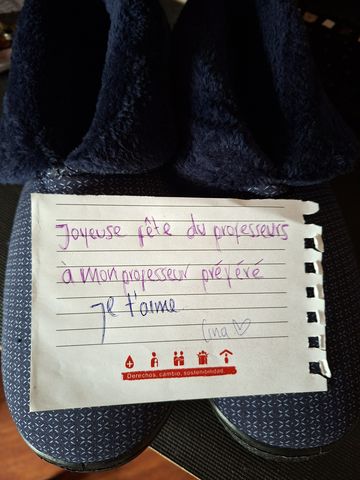 Joyeuse fête du professeurs
à mon professeur préféré
je t'aime
Lina
Derechos, cambio, sostenibilidad.